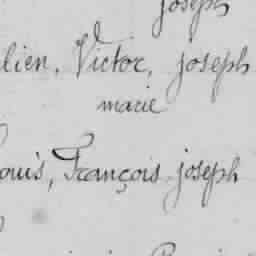 joseph
lien, Victor, joseph
marie
ouis, François joseph